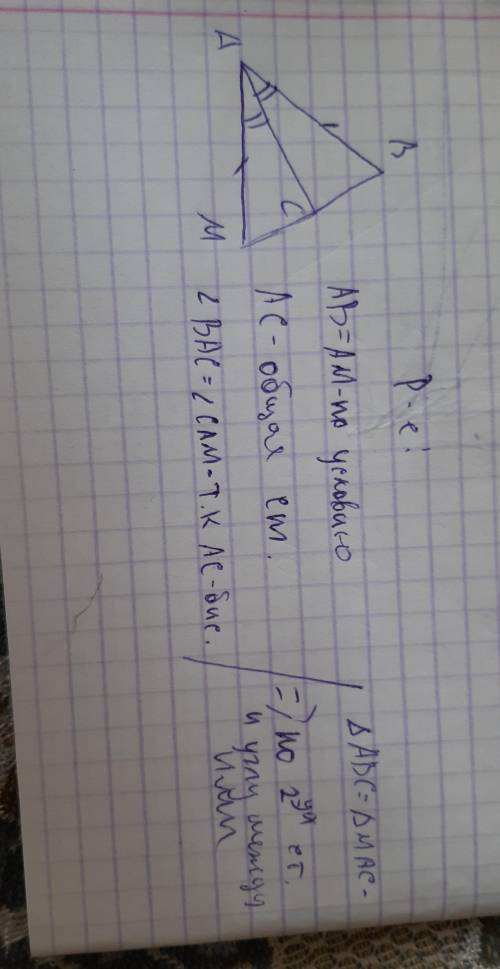 Р-е:
A
B
C
M
AB=AM-по условию
AC-общая ст.
∠BAC=∠CAM-т.к AC-бис.
ΔABC=ΔMAC-
=) по 2ум ст.
и углу между
ними